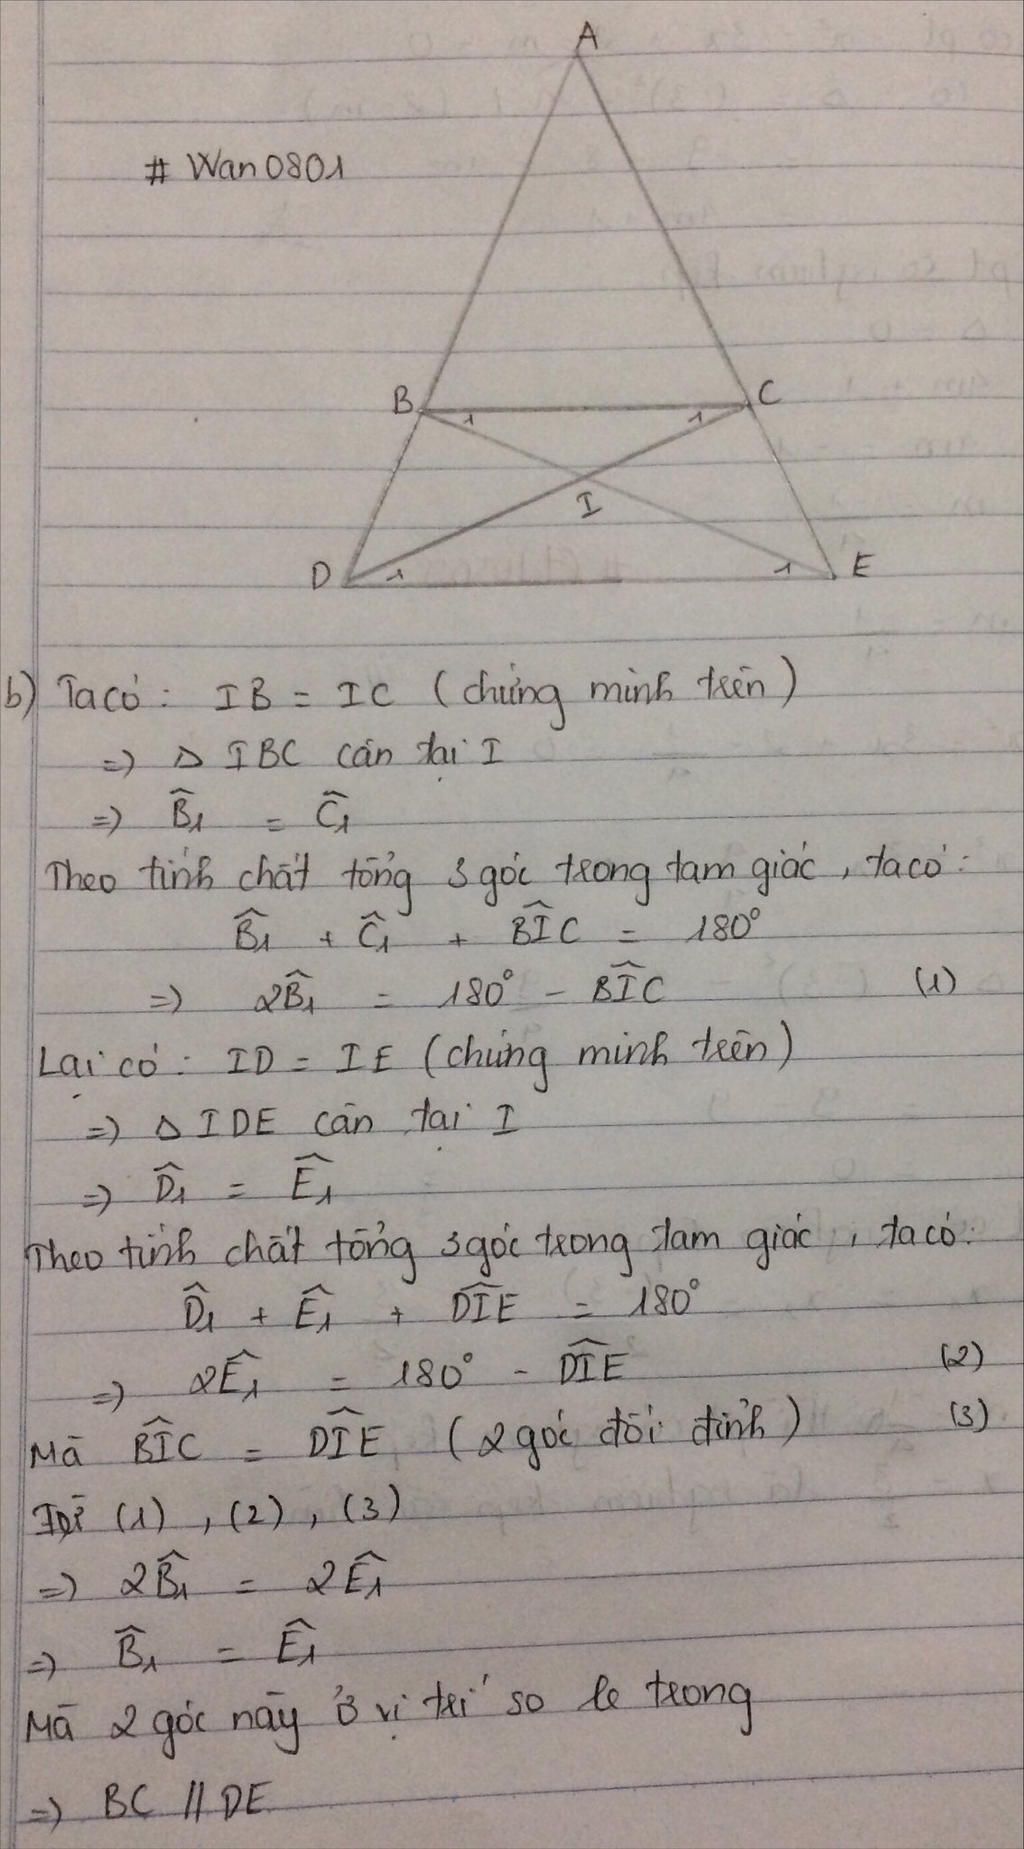 A
# Wan0801
B
C
1
1
I
D
1
1
E
b) Ta có: IB = IC (chứng minh trên)
=> Δ IBC cân tại I
=> B̂1 = Ĉ1
Theo tính chất tổng 3 góc trong tam giác, ta có:
B̂1 + Ĉ1 + BÎC = 180°
=> 2B̂1 = 180° - BÎC (1)
Lại có: ID = IE (chứng minh trên)
=> Δ IDE cân tại I
=> D̂1 = Ê1
Theo tính chất tổng 3 góc trong tam giác, ta có:
D̂1 + Ê1 + DÎE = 180°
=> 2Ê1 = 180° - DÎE (2)
Mà BÎC = DÎE (2 góc đối đỉnh) (3)
Từ (1), (2), (3)
=> 2B̂1 = 2Ê1
=> B̂1 = Ê1
Mà 2 góc này ở vị trí so le trong
=> BC // DE